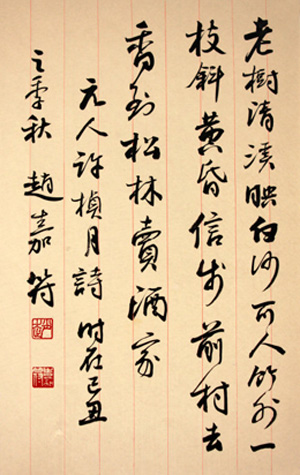 老樹清溪映白沙可人竹外一
枝斜黃昏信步前村去
香到松林賣酒家
元人許楨月詩時在己丑
之季秋趙嘉符